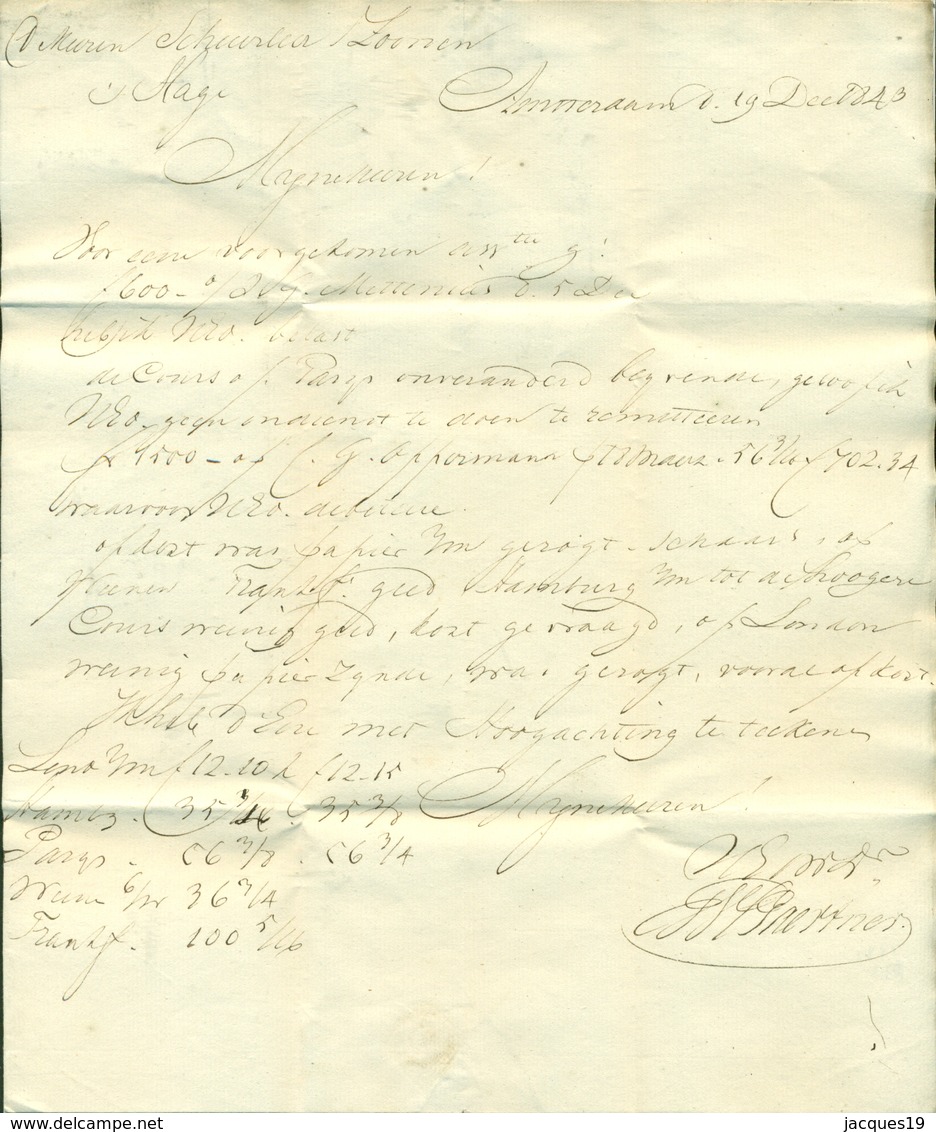 D Heeren Scheurleer & Zoonen
's Hage
Amsterdam d. 19 Dec 1843
Mynheeren!
Voor eene voorgekomen
f 600 - o/ d. 5 Dec
heb ik UEd. belast
de Cours op Parys onveranderd blyvende, geloof ik
UEd. geen ondienst te doen te remitteeren
f 1500 - op C. G. Oppermann 56 3/16 f 702.34
waarvoor UEd. debiteere
op kort was papier 2/m gezogt - schaars, op
Weenen Frankf. geld Hamburg 2/m tot de hoogere
Cours weinig geld, kort gevraagd, op London
weinig papier zynde, was gezogt, vooral op kort.
Ik heb d'Eer met Hoogachting te teekenen
Lond 2/m f 12-10 à f 12-15
Mynheeren!
Hamb. 35 3/16 35 3/8
Parys - 56 3/8 - 56 3/4
UEd
Weene 6/w 36 3/4
Frankf. - 100 5/16
www.delcampe.net
jacques19